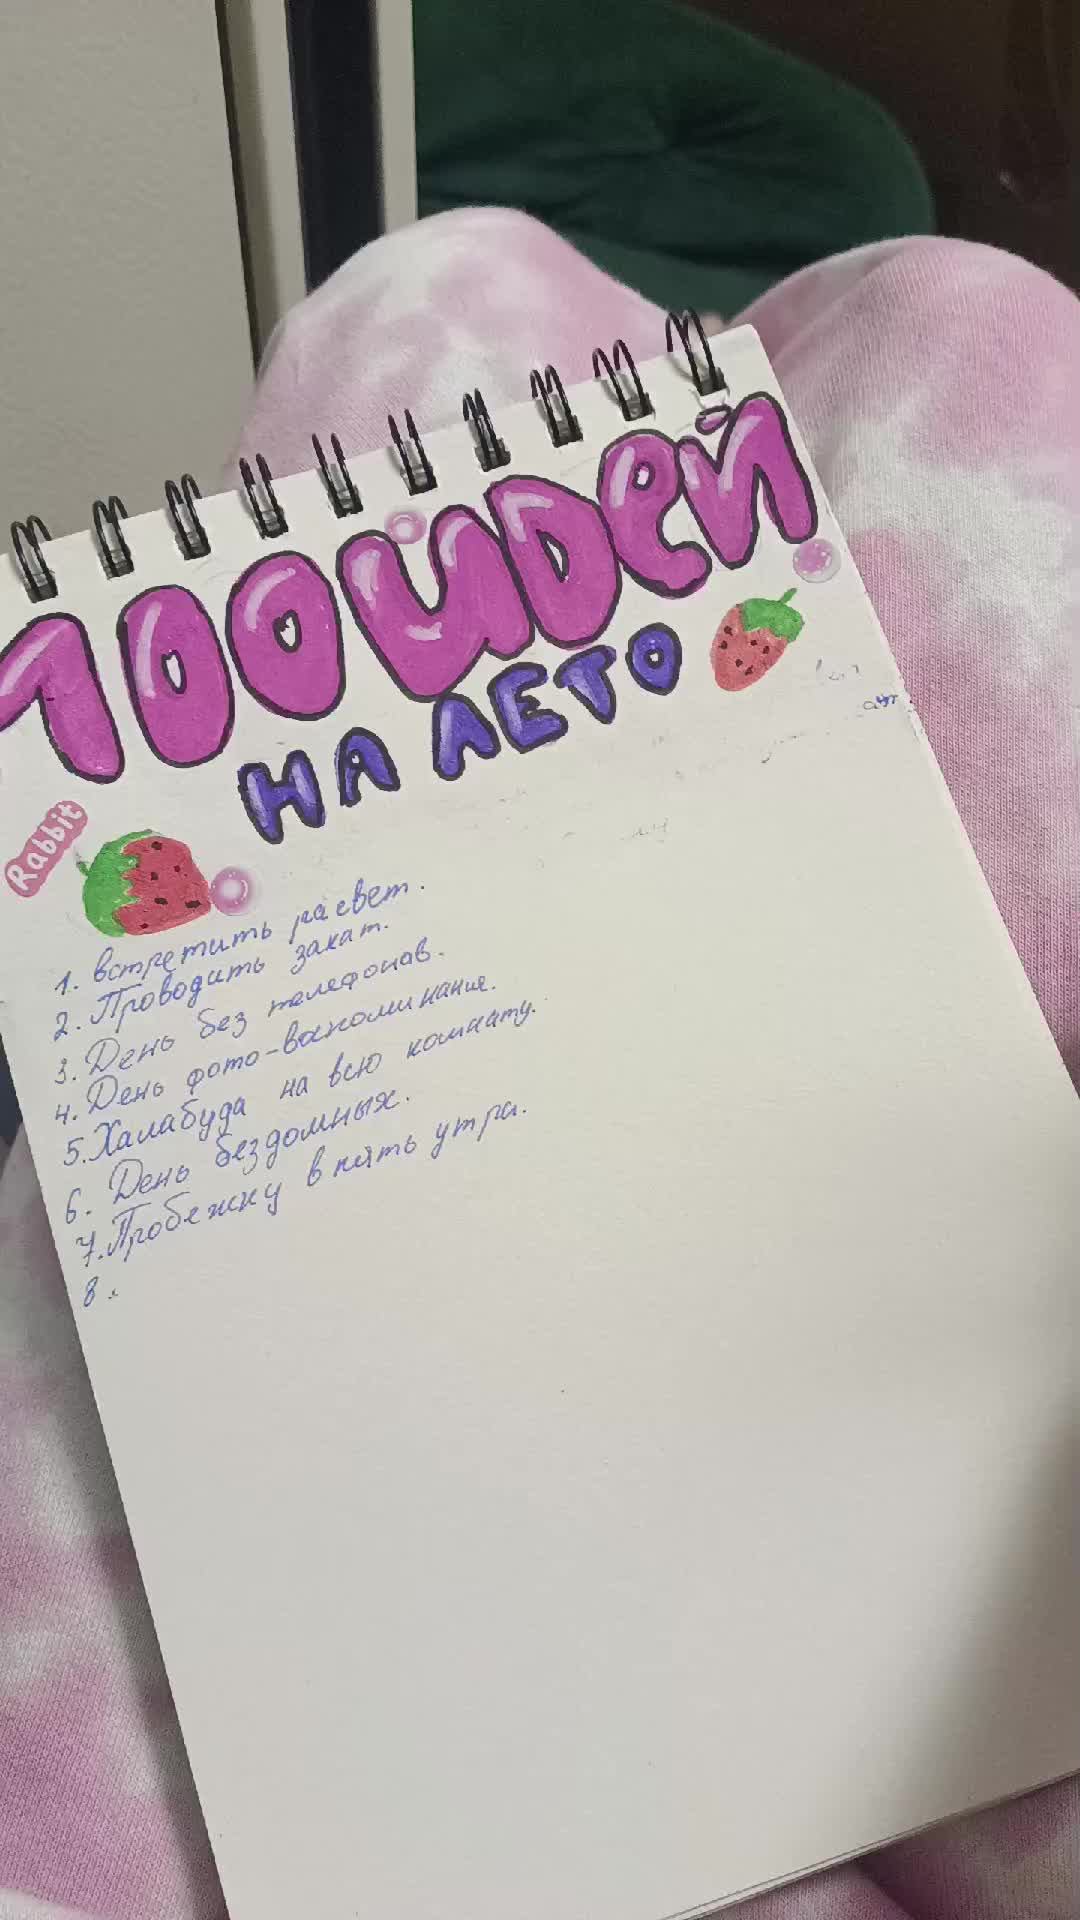 100 идей
НА ЛЕТО
Rabbit
1. встретить расвет.
2. Проводить закат.
3. День без телефонов.
4. День фото-воспоминания.
5. Халабуда на всю комнату.
6. День бездомных.
7. Пробежку в пять утра.
8.